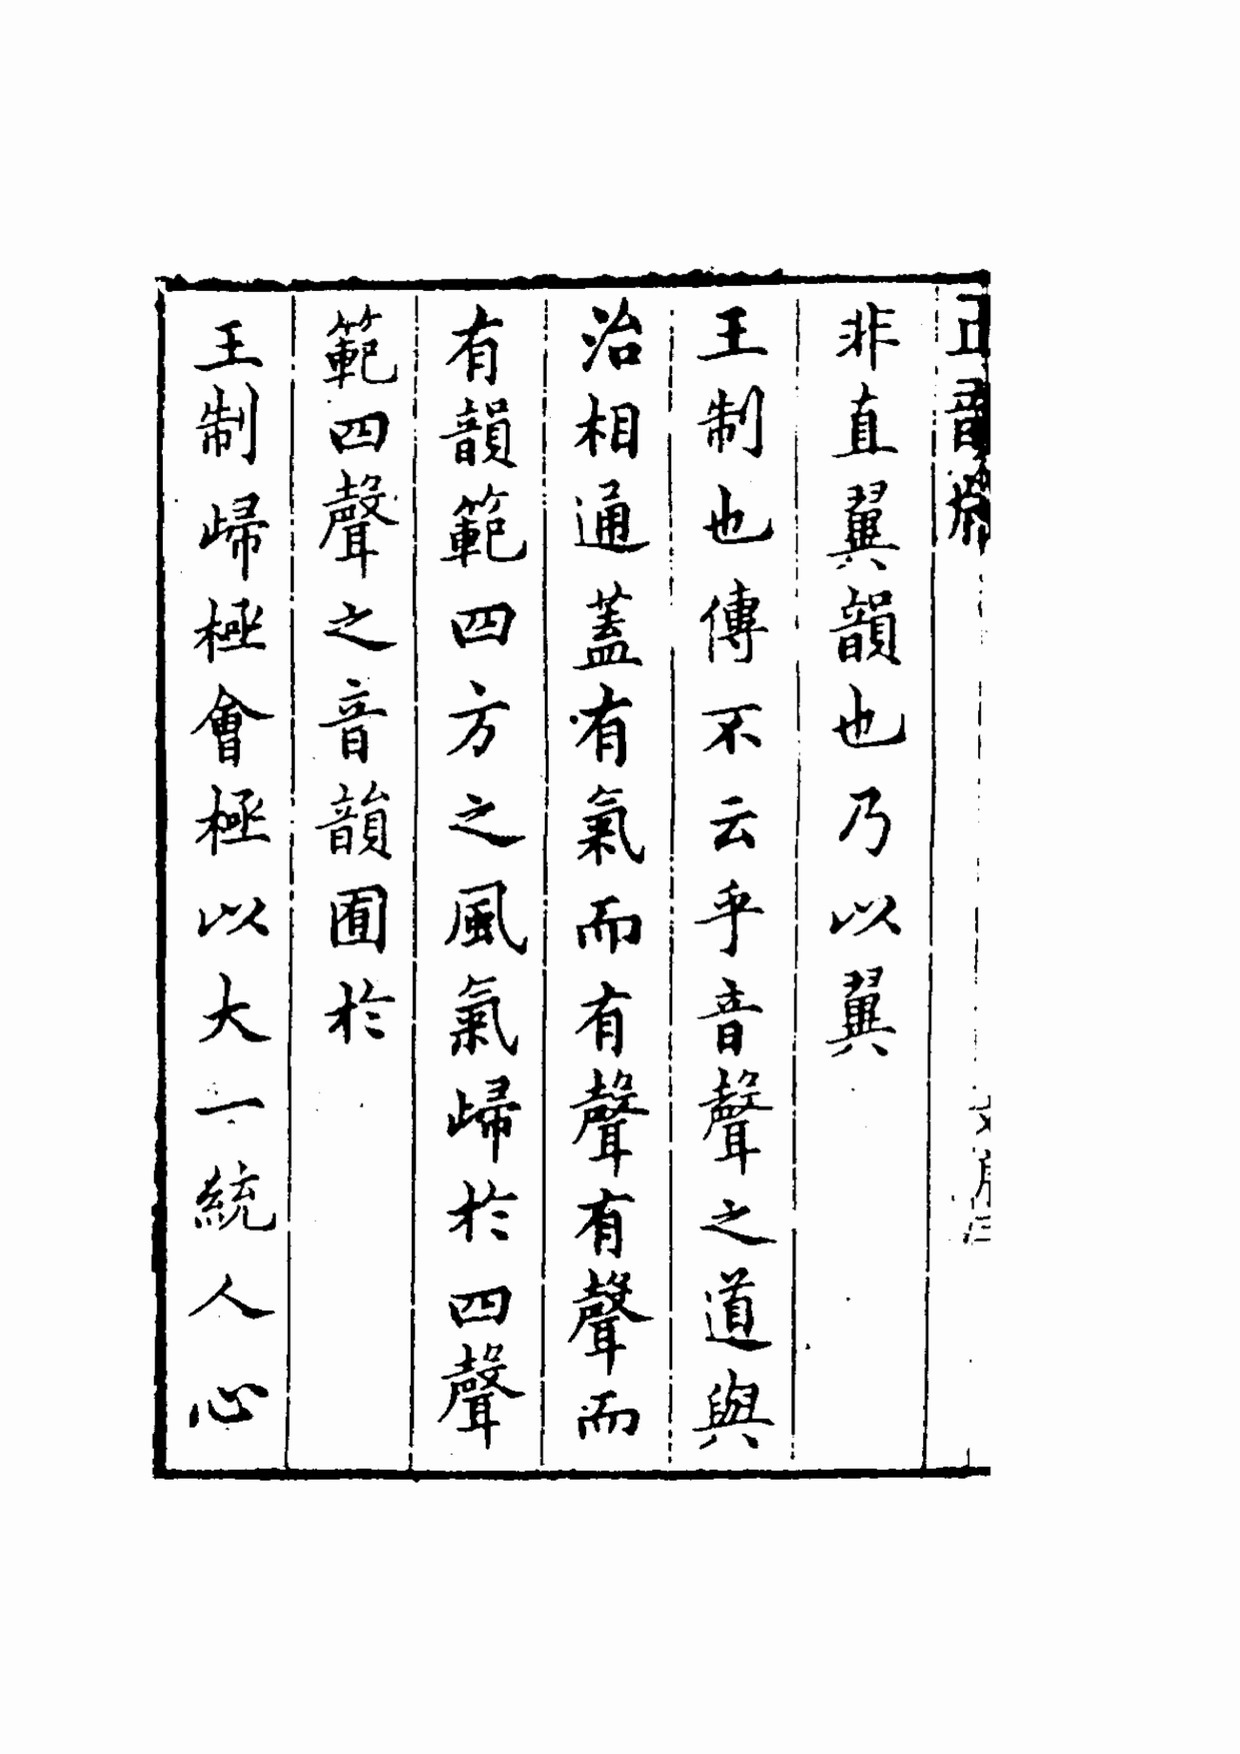 非直翼韻也乃以翼
王制也傳不云乎音聲之道與
治相通蓋有氣而有聲有聲而
有韻範四方之風氣歸於四聲
範四聲之音韻囿於
王制歸極會極以大一統人心